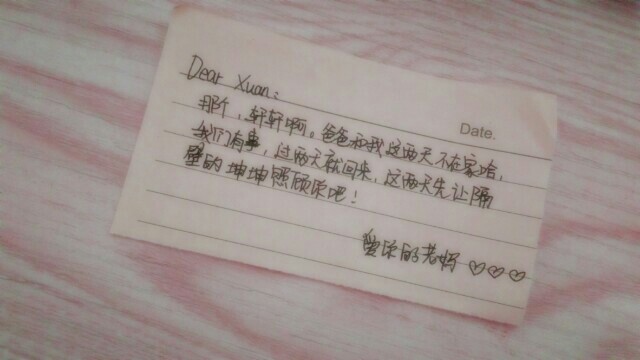 Date.
Dear Xuan:
那个,轩轩啊。爸爸和我这两天不在家哈,
我们有事,过两天就回来,这两天先让隔
壁的坤坤照顾你吧!
爱你的老妈♡♡♡